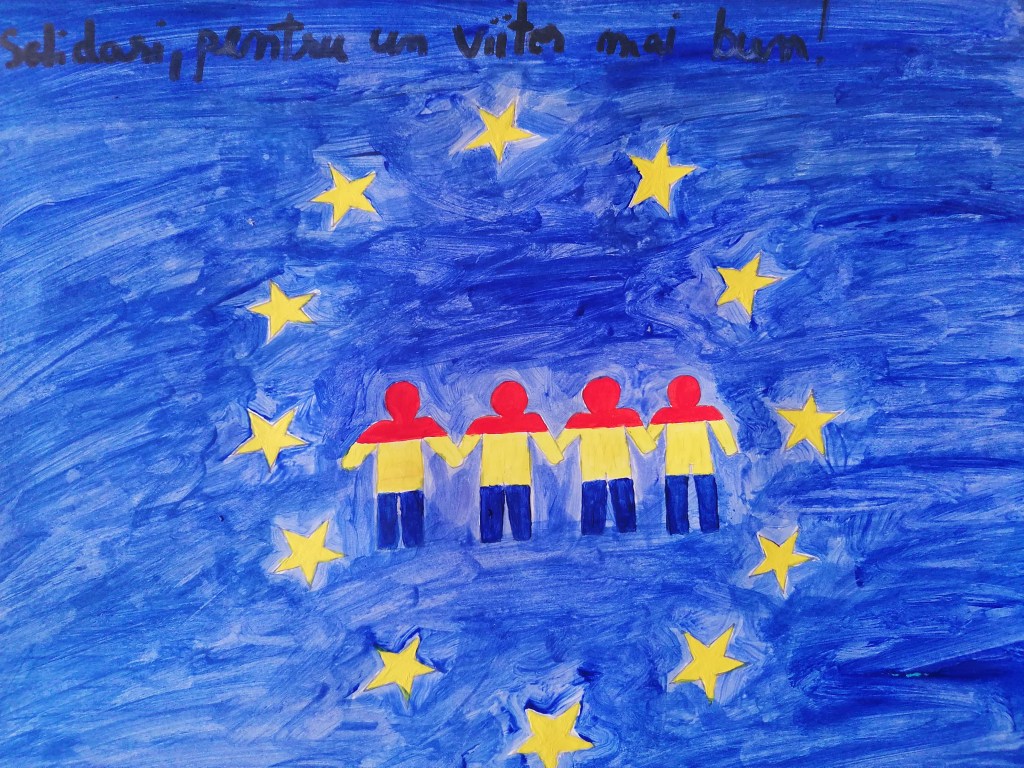 Solidari, pentru un viitor mai bun!